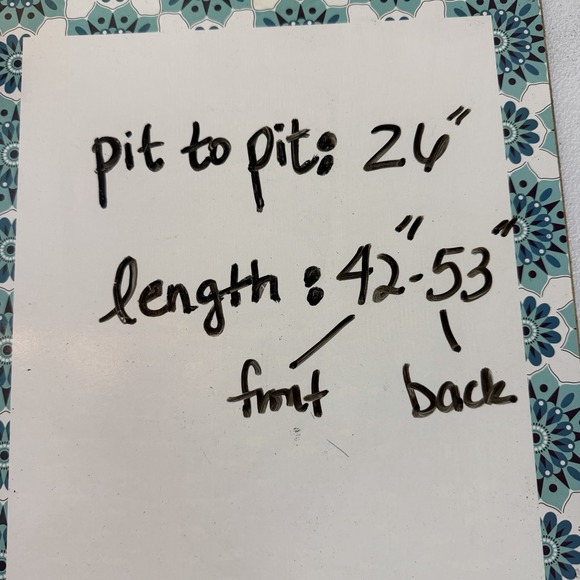 pit to pit: 26"
length: 42"-53"
front back